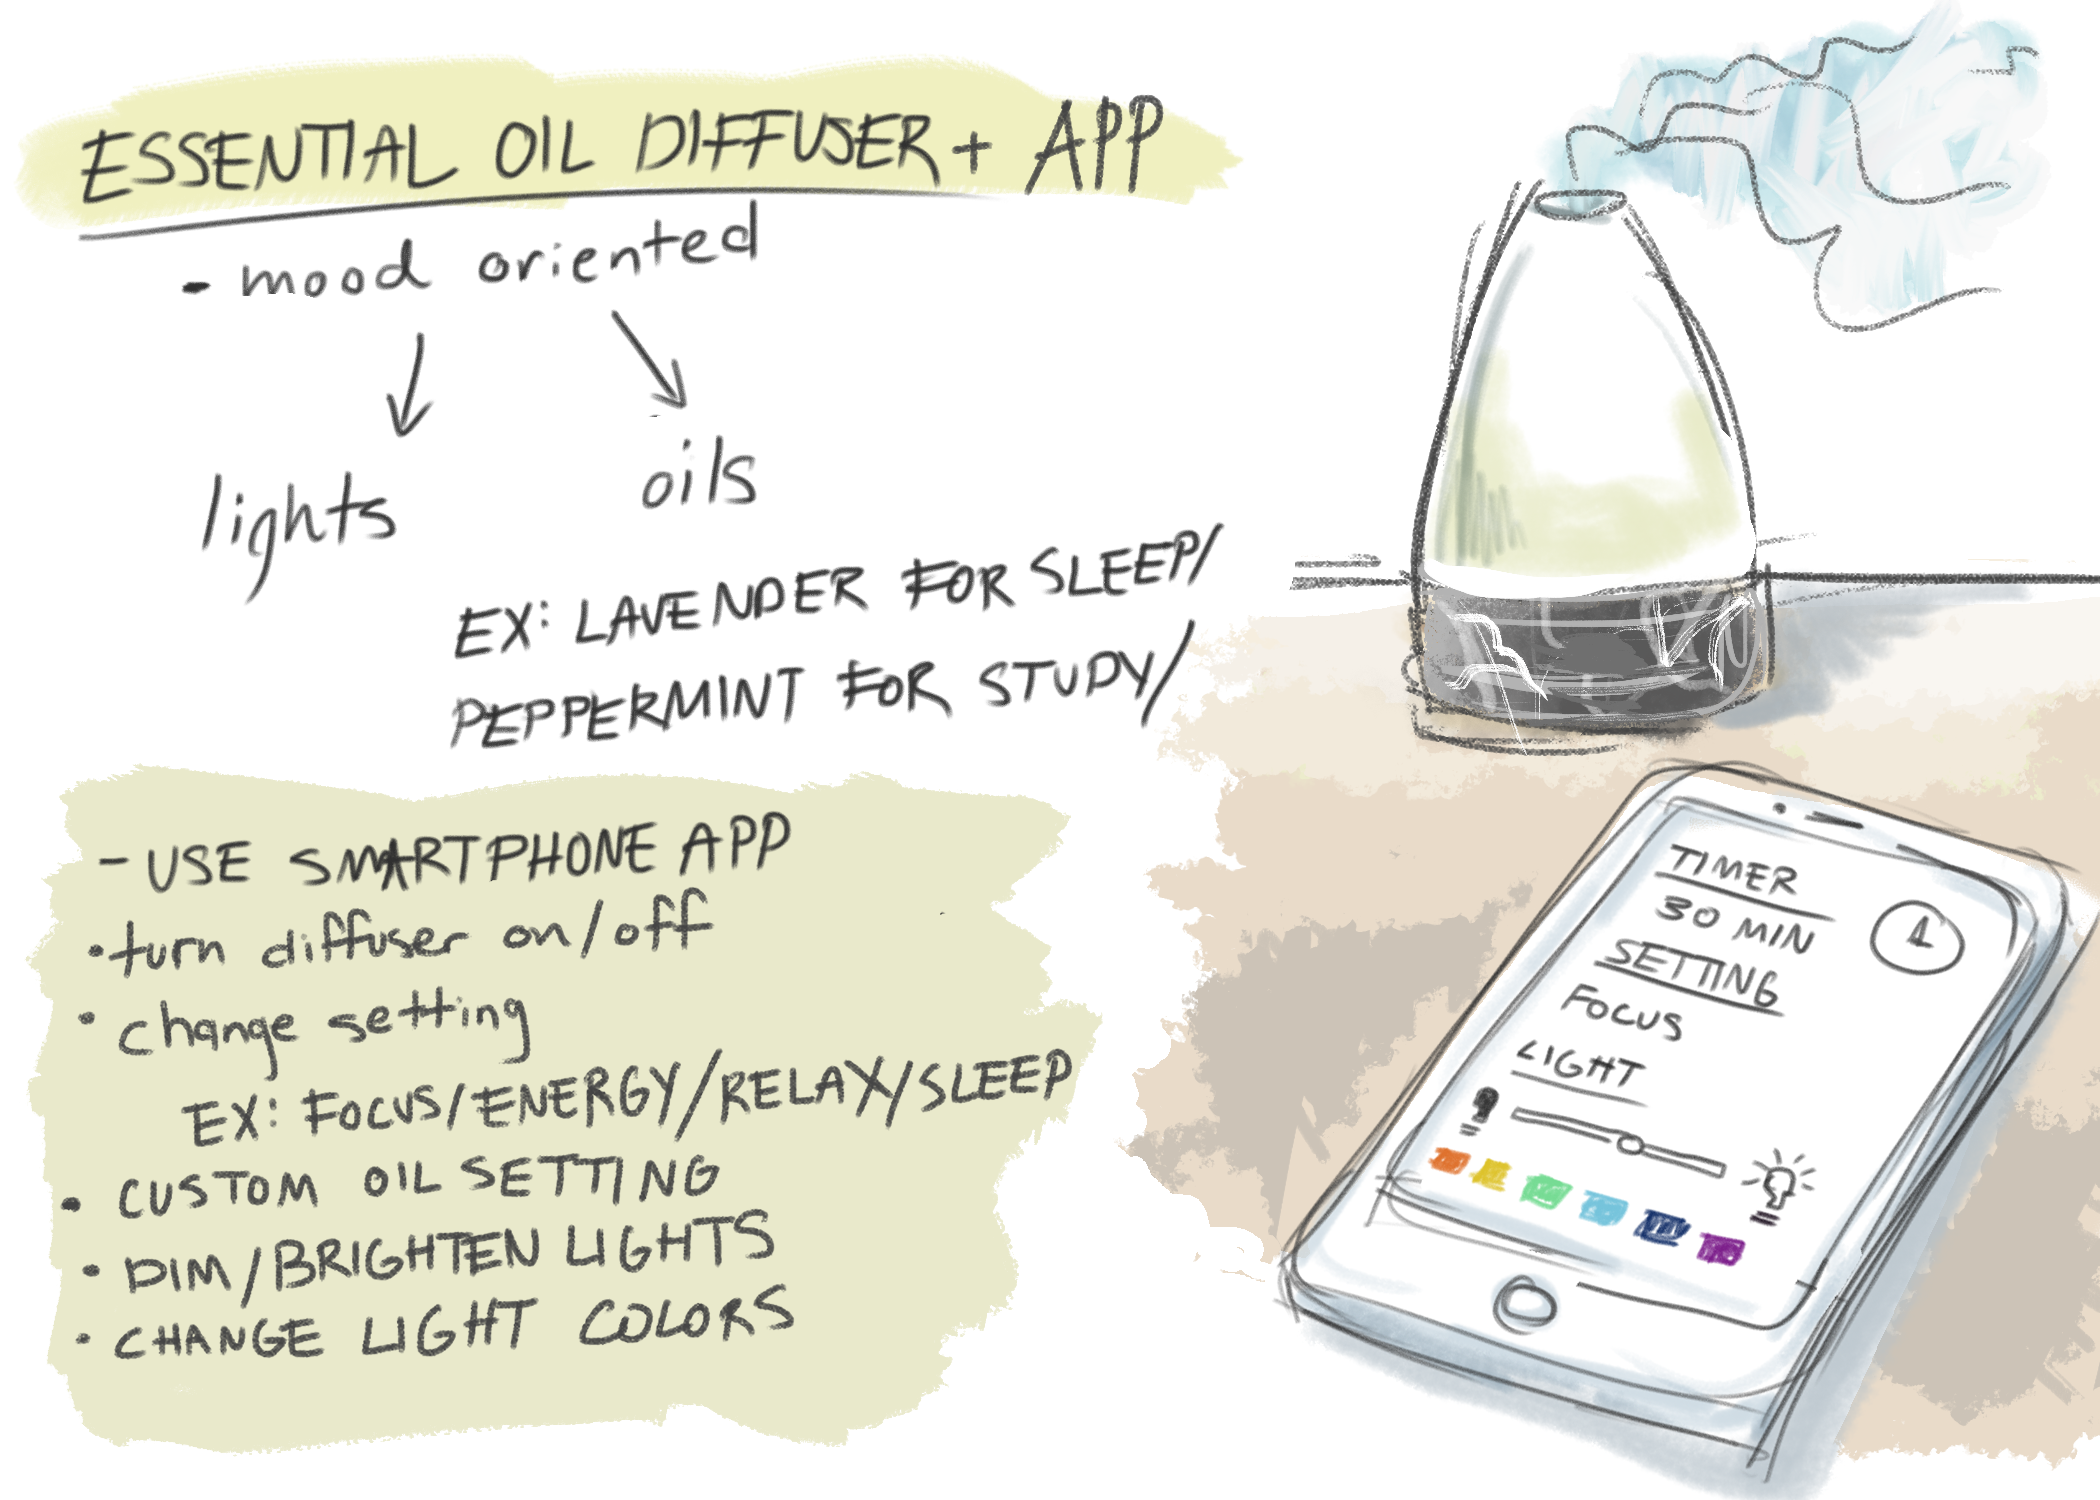 ESSENTIAL OIL DIFFUSER + APP
- mood oriented
lights
oils
EX: LAVENDER FOR SLEEP/
PEPPERMINT FOR STUDY/
- USE SMARTPHONE APP
• turn diffuser on/off
• change setting
EX: FOCUS/ENERGY/RELAX/SLEEP
• CUSTOM OIL SETTING
• DIM/BRIGHTEN LIGHTS
• CHANGE LIGHT COLORS
TIMER
30 MIN
SETTING
FOCUS
LIGHT